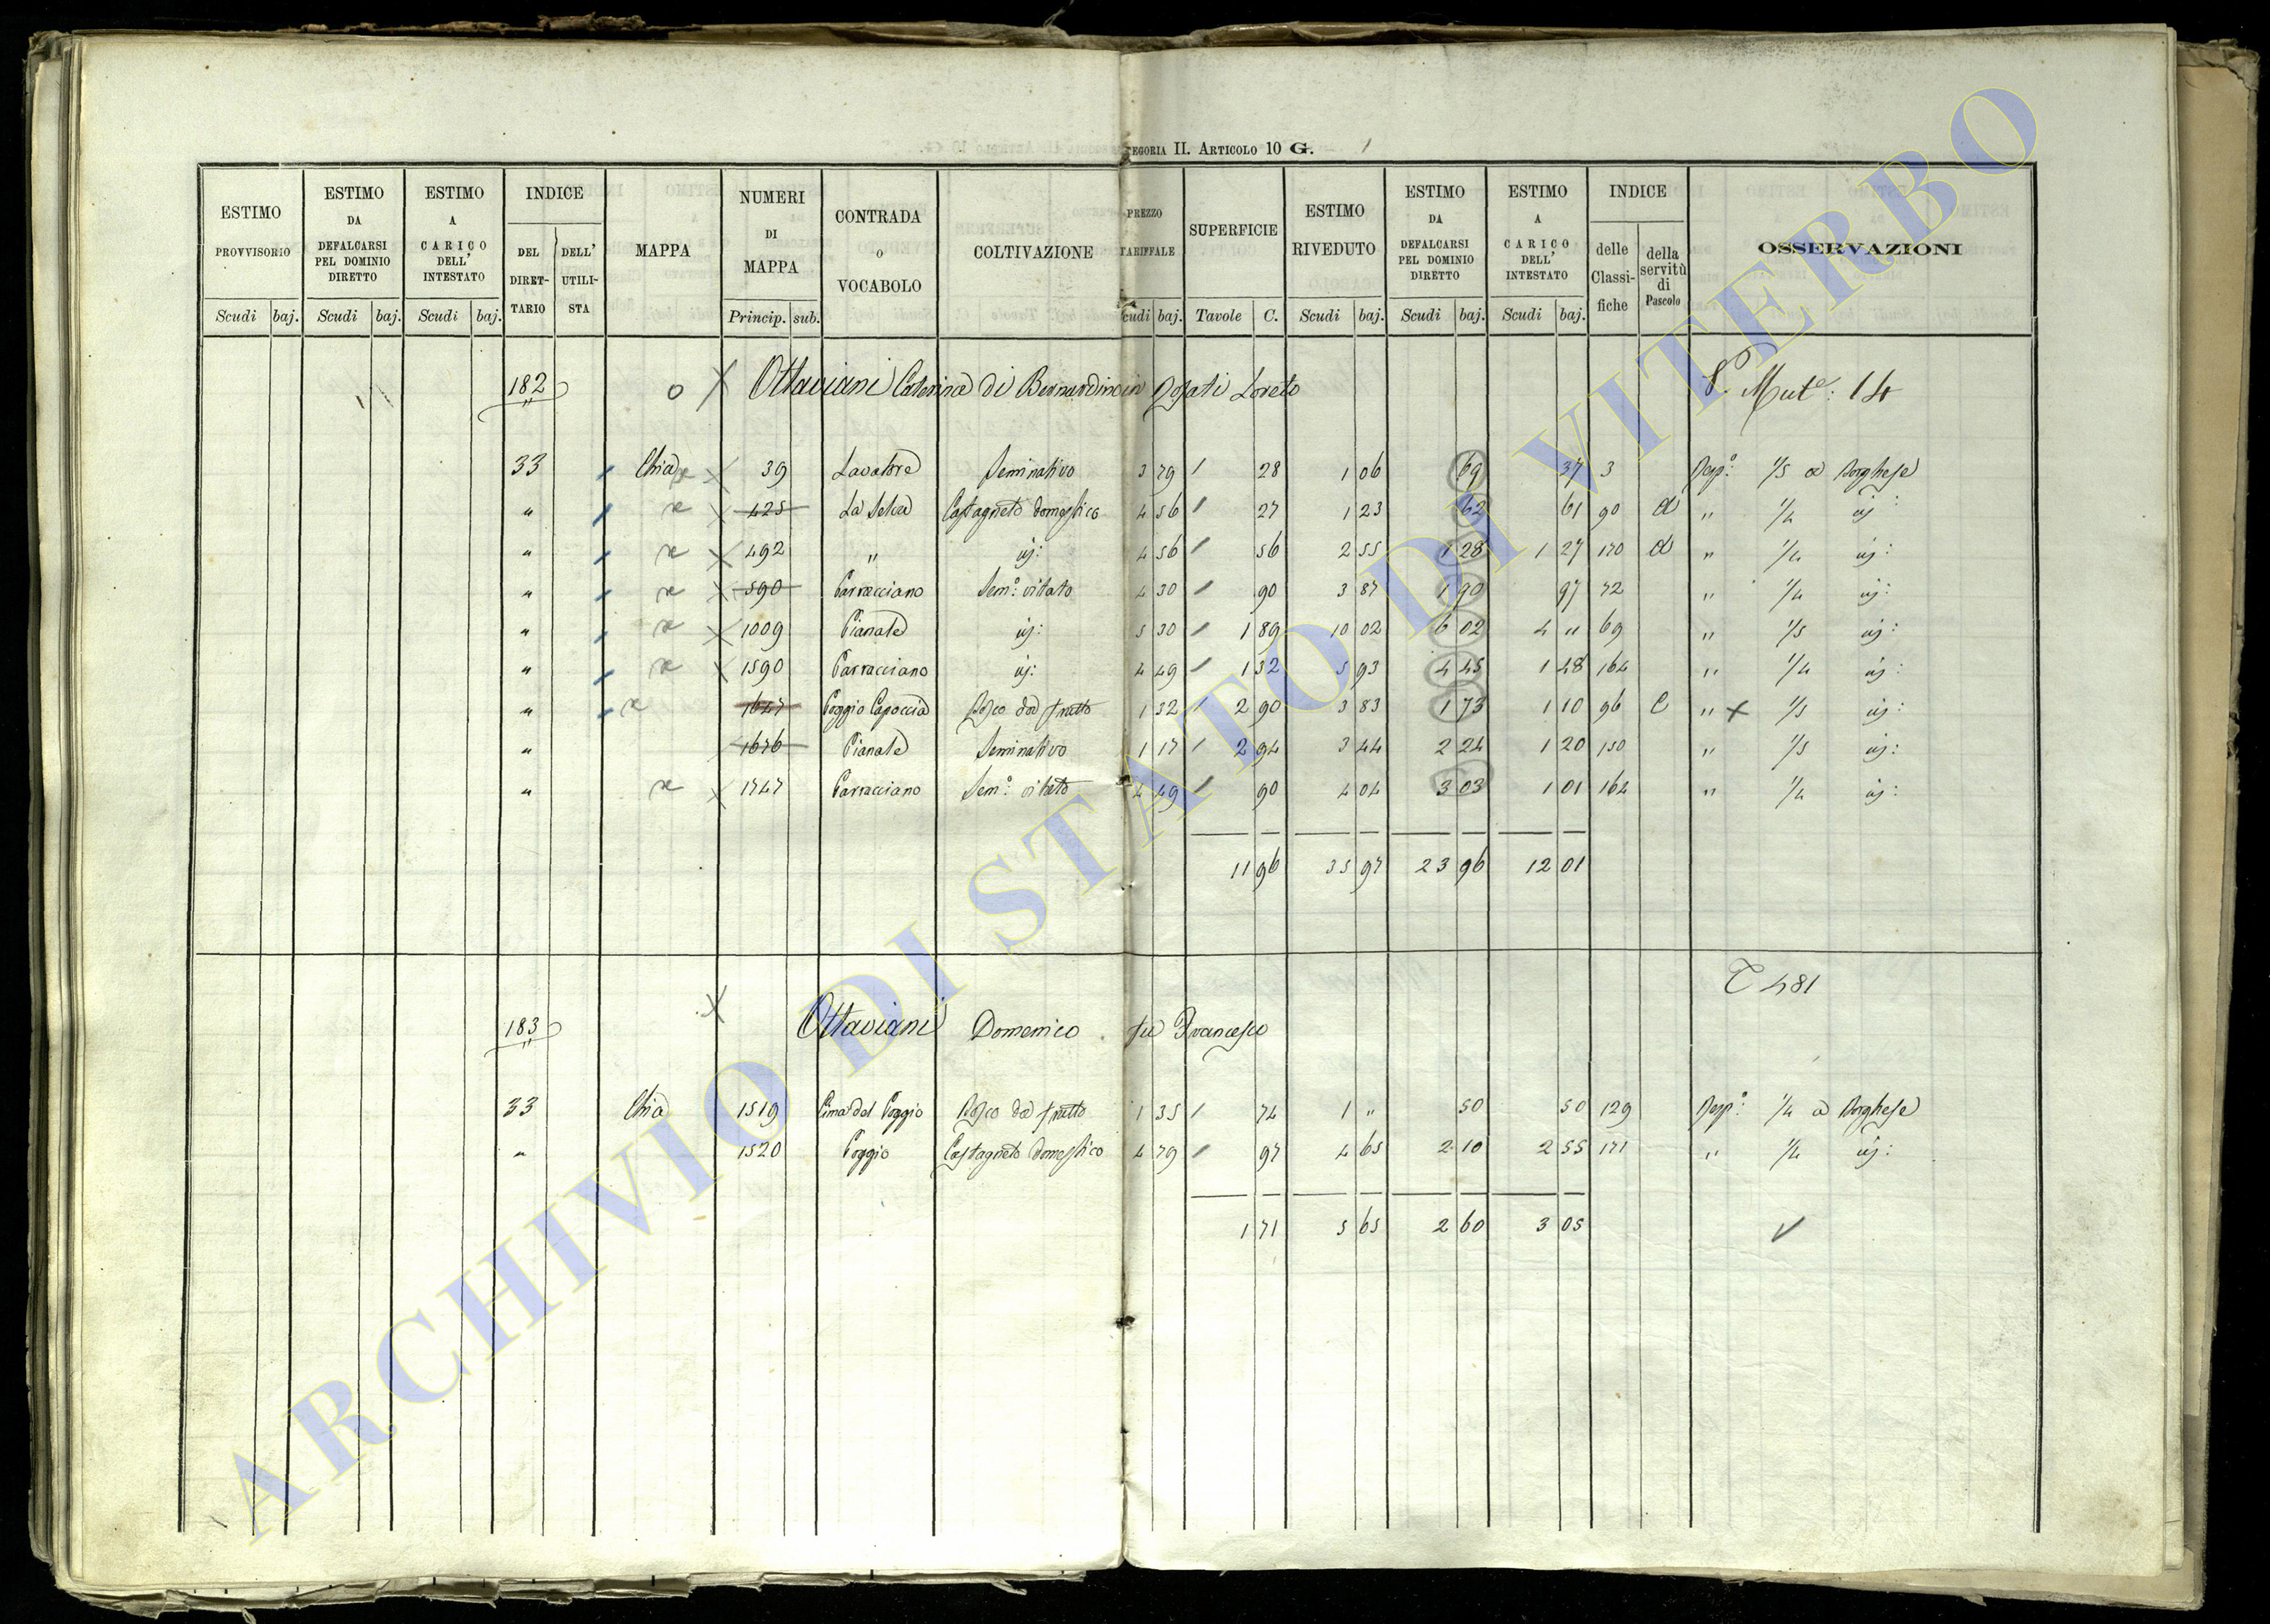 EGORIA II. ARTICOLO 10 G.
ESTIMO PROVVISORIO Scudi baj.
ESTIMO DA DEFALCARSI PEL DOMINIO DIRETTO Scudi baj.
ESTIMO A CARICO DELL' INTESTATO Scudi baj.
INDICE DEL DIRET-TARIO DELL' UTILI-STA
MAPPA
NUMERI DI MAPPA Princip. sub.
CONTRADA O VOCABOLO
COLTIVAZIONE
PREZZO TARIFFALE cudi baj.
SUPERFICIE Tavole C.
ESTIMO RIVEDUTO Scudi baj.
ESTIMO DA DEFALCARSI PEL DOMINIO DIRETTO Scudi baj.
ESTIMO A CARICO DELL' INTESTATO Scudi baj.
INDICE delle Classi-fiche della servitù di Pascolo
OSSERVAZIONI
182 Ottaviani Caterina di Bernardino in Loreto 14
33 Chia 39 Lavatore Seminativo 3 79 28 1 06 69 37 3 Risp: 1/5 a Borghese
" 425 La Selva Castagneto domestico 4 56 27 1 23 62 61 90 a " 1/4 id:
" 492 " id: 4 56 56 2 55 1 28 1 27 170 a " 1/4 id:
" 590 Carracciano Sem: vitato 4 30 90 3 87 1 90 97 72 " 1/4 id:
" 1009 Pianale id: 5 30 1 89 10 02 6 02 4 " 69 " 1/5 id:
" 1590 Carracciano id: 4 49 1 32 5 93 4 45 1 48 164 " 1/4 id:
" 1647 Poggio Capoccia Bosco da frutto 1 32 2 90 3 83 1 73 1 10 96 C " 1/5 id:
" 1676 Pianale Seminativo 1 17 2 94 3 44 2 24 1 20 150 " 1/5 id:
" 1747 Carracciano Sem: vitato 4 49 90 4 04 3 03 1 01 164 " 1/4 id:
11 96 35 97 23 96 12 01
T 481
183 Ottaviani Domenico fu Francesco
33 Chia 1519 Cima del Poggio Bosco da frutto 1 35 74 1 " 50 50 129 Risp: 1/4 a Borghese
" 1520 Poggio Castagneto domestico 4 79 97 4 65 2 10 2 55 171 " 1/4 id:
1 71 5 65 2 60 3 05
ARCHIVIO DI STATO DI VITERBO